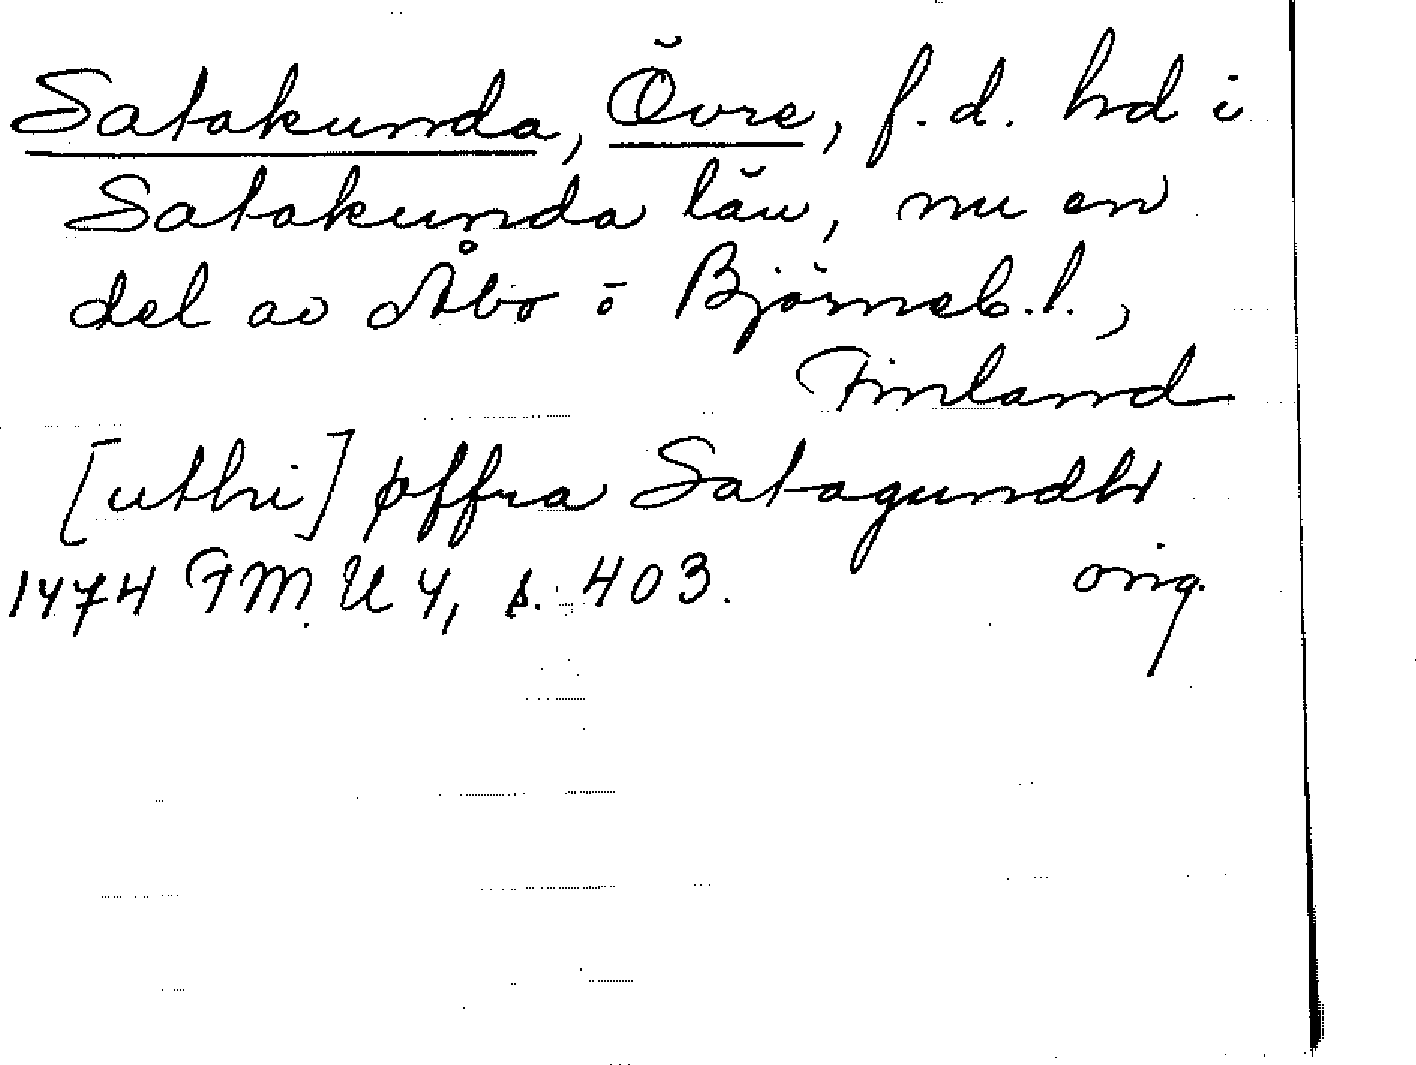 Satakunda, Övre, f.d. hd i
Satakunda län, nu en
del av Åbo o Björneb. l.,
Finland
[uthi] øffra Satagundh
1474 FMU 4, s. 403. orig.